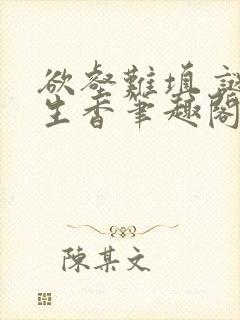 欲壑難填 謎
生香筆趣閣
陳某文